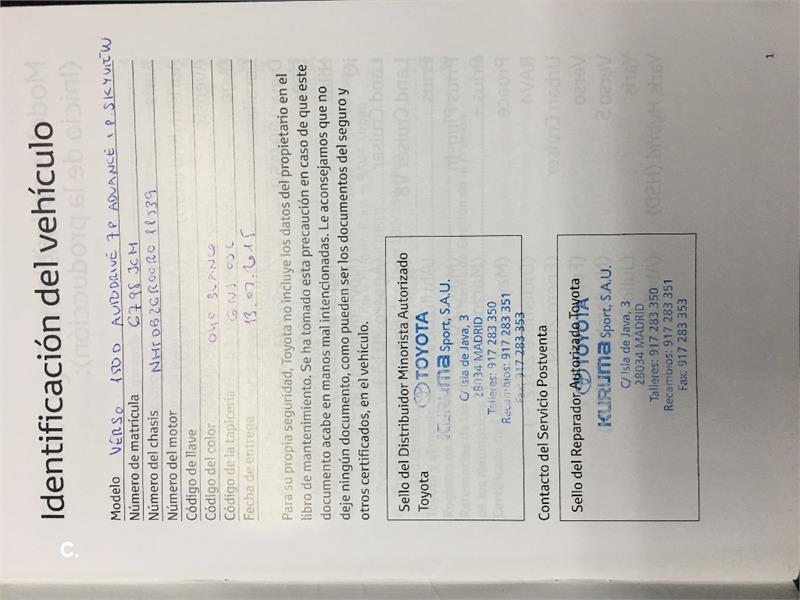 Identificación del vehículo
Modelo VERSO 150D AUTODRIVE 7P ADVANCE + P SKYVIEW
Número de matrícula 6798 JCM
Número del chasis
Número del motor
Código de llave
Código del color 040 BLANCO
Código de la tapicería
Fecha de entrega 13.07.2015
Para su propia seguridad, Toyota no incluye los datos del propietario en el
libro de mantenimiento. Se ha tomado esta precaución en caso de que este
documento acabe en manos mal intencionadas. Le aconsejamos que no
deje ningún documento, como pueden ser los documentos del seguro y
otros certificados, en el vehículo.
Sello del Distribuidor Minorista Autorizado
Toyota
TOYOTA
KURUMA Sport, S.A.U.
C/ Isla de Java, 3
28034 MADRID
Talleres: 917 283 350
Recambios: 917 283 351
Fax: 917 283 353
Contacto del Servicio Postventa
Sello del Reparador Autorizado Toyota
TOYOTA
KURUMA Sport, S.A.U.
C/ Isla de Java, 3
28034 MADRID
Talleres: 917 283 350
Recambios: 917 283 351
Fax: 917 283 353
1
C.